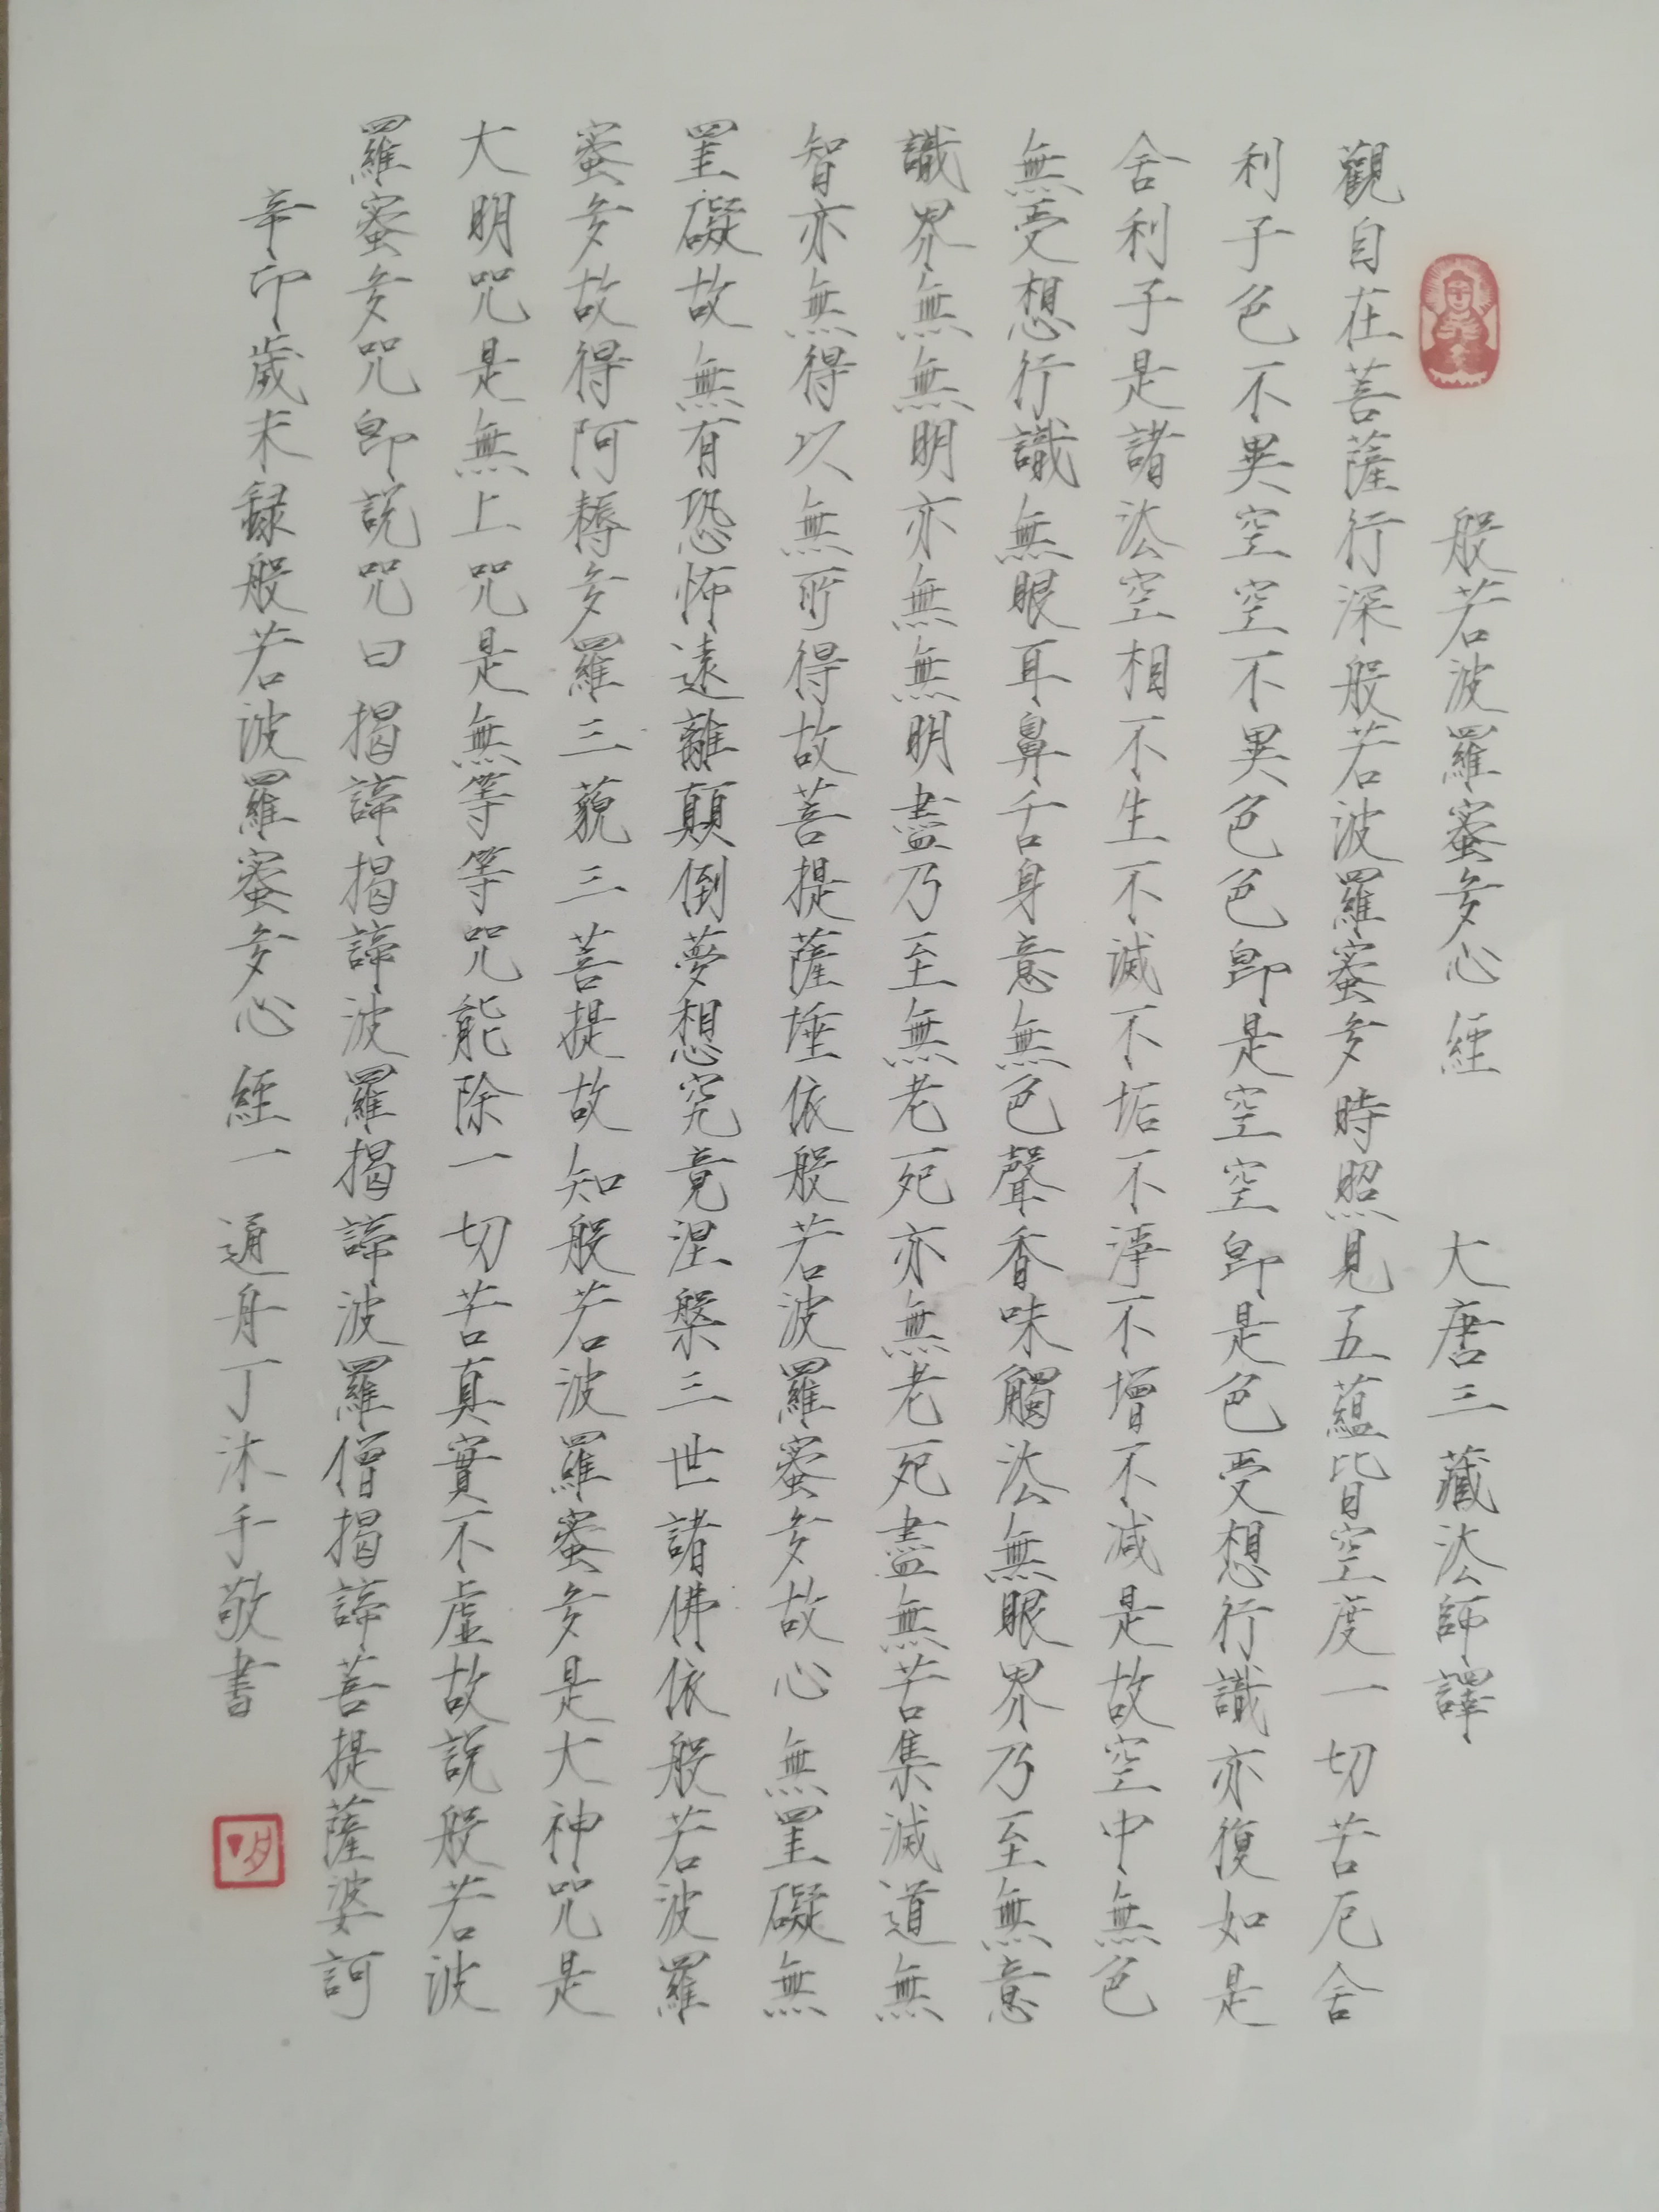 般若波羅蜜多心經 大唐三藏法師譯
觀自在菩薩行深般若波羅蜜多時照見五蘊皆空度一切苦厄舍
利子色不異空空不異色色即是空空即是色受想行識亦復如是
舍利子是諸法空相不生不滅不垢不淨不增不減是故空中無色
無受想行識無眼耳鼻舌身意無色聲香味觸法無眼界乃至無意
識界無無明亦無無明盡乃至無老死亦無老死盡無苦集滅道無
智亦無得以無所得故菩提薩埵依般若波羅蜜多故心無罣礙無
罣礙故無有恐怖遠離顛倒夢想究竟涅槃三世諸佛依般若波羅
蜜多故得阿耨多羅三藐三菩提故知般若波羅蜜多是大神咒是
大明咒是無上咒是無等等咒能除一切苦真實不虛故說般若波
羅蜜多咒即說咒曰揭諦揭諦波羅揭諦波羅僧揭諦菩提薩婆訶
辛卯歲末錄般若波羅蜜多心經一通舟丁沐手敬書